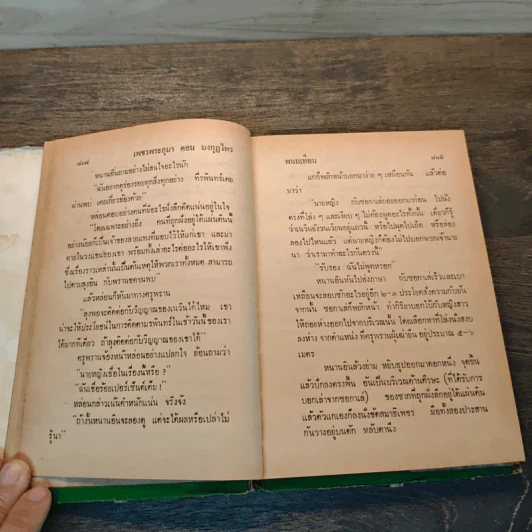 ๘๑๔ เพชรพระอุมา ตอน มงกุฎไพร
หนานเย็นถามอย่างไม่สนใจอะไรนัก
"ฉันอยากดูร่องรอยทุกสิ่งทุกอย่าง ที่รพินทร์เคย
ผ่านพบ เคยเกี่ยวข้องด้วย"
หล่อนตอบอย่างคนที่มีอะไรฝังลึกติดแน่นอยู่ในใจ
"โดยเฉพาะอย่างยิ่ง คนที่ถูกฝังอยู่ใต้แผ่นดินนี้
อย่างน้อยก็เป็นเจ้าของลายแทงที่มอบไว้ให้แก่เขา และมา
ตายในวงแขนของเขา พร้อมทั้งเล่าอะไรต่ออะไรให้เขาฟัง
ซึ่งเรื่องราวเหล่านั้นเป็นต้นเหตุให้พวกเราทั้งหมด สามารถ
ไปตามลุงอิน กับพรานชดจนพบ"
แล้วหล่อนก็หันมาทางครูพราน
"ลุงพอจะติดต่อกับวิญญาณของเนวินได้ไหม เขา
น่าจะให้ประโยชน์ในการติดตามรพินทร์ในเช้าวันนี้ ของเรา
ได้มากทีเดียว ถ้าลุงติดต่อกับวิญญาณของเขาได้"
ครูพรานจ้องหน้าหล่อนอย่างแปลกใจ ย้อนถามว่า
"นายหญิงเชื่อในเรื่องนี้หรือ ?"
"ฉันเชื่อร้อยเปอร์เซ็นต์เต็ม !"
หล่อนกล่าวเน้นคำหนักแน่น จริงจัง
"ถ้างั้นหนานอินจะลองดู แต่จะได้ผลหรือเปล่าไม่
รู้นา"
พนมเทียน ๘๑๕
แกก็พลิกหน้าบอกมาง่าย ๆ เหมือนกัน แล้วต่อ
มาว่า
"นายหญิง กับซอกาเล่ถอยออกมาก่อน ไปนั่ง
ตรงที่โล่ง ๆ และเงียบ ๆ ไม่ต้องพูดอะไรทั้งนั้น เดี๋ยวก็รู้
ว่าเนวินยังวนเวียนอยู่แถวนี้ หรือไปผุดไปเกิด หรือล่อง
ลอยไปไหนแล้ว แต่นายหญิงก็ต้องไม่ไปบอกพวกเจ้านาย
นา ว่าเรามาทำอะไรกันตรงนี้"
"รับรอง ฉันไม่พูดหรอก"
หนานอินหันไปส่งภาษา กับซอกาเล่เร็วและเบา
เหมือนจะสอบซักอะไรอยู่อีก ๒-๓ ประโยคสั้นความกันมา
จากนั้น ซอกาเล่ก็พยักหน้า ทำกิริยาบอกใบ้กับหญิงสาว
ให้ถอยห่างออกไปจากบริเวณนั้น โดยเลือกหาที่โล่งนั่งสงบ
ลงห่าง จากตำแหน่ง ที่ครูพรานผู้เฒ่ายืน อยู่ประมาณ ๕-๖
เมตร
หนานอินล้วงย่าม หยิบธูปออกมาดอกหนึ่ง จุดขึ้น
แล้วปักลงตรงพื้น อันเป็นบริเวณด้านศีรษะ (ที่ได้รับการ
บอกเล่าจากซอกาเล่) ของซากที่ถูกฝังลึกอยู่ใต้แผ่นดิน
แล้วตัวแกเองก็ลงนั่งขัดสมาธิเพชร มือทั้งสองประสาน
กันวางอยู่บนตัก หลับตานิ่ง